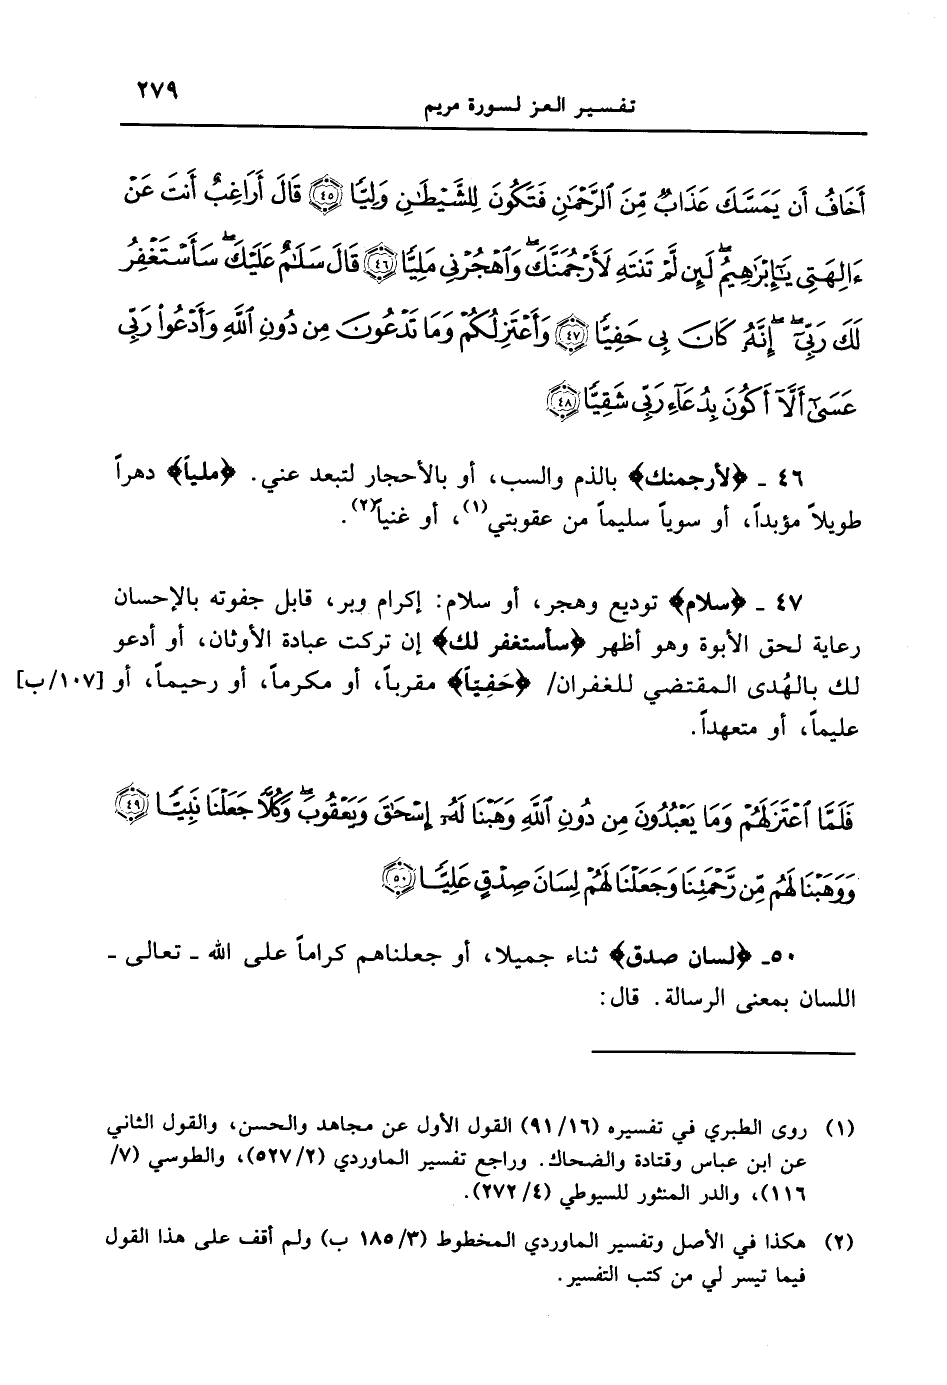 ٢٧٩
تفسير العز لسورة مريم
أَخَافُ أَن يَمَسَّكَ عَذَابٌ مِّنَ ٱلرَّحْمَٰنِ فَتَكُونَ لِلشَّيْطَٰنِ وَلِيًّا ٤٥ قَالَ أَرَاغِبٌ أَنتَ عَنْ
ءَالِهَتِى يَٰٓإِبْرَٰهِيمُ ۖ لَئِن لَّمْ تَنتَهِ لَأَرْجُمَنَّكَ ۖ وَٱهْجُرْنِى مَلِيًّا ٤٦ قَالَ سَلَٰمٌ عَلَيْكَ ۖ سَأَسْتَغْفِرُ
لَكَ رَبِّىٓ ۖ إِنَّهُۥ كَانَ بِى حَفِيًّا ٤٧ وَأَعْتَزِلُكُمْ وَمَا تَدْعُونَ مِن دُونِ ٱللَّهِ وَأَدْعُوا۟ رَبِّى
عَسَىٰٓ أَلَّآ أَكُونَ بِدُعَآءِ رَبِّى شَقِيًّا ٤٨
٤٦ ـ ﴿لأرجمنك﴾ بالذم والسب، أو بالأحجار لتبعد عني. ﴿ملياً﴾ دهراً
طويلاً مؤبداً، أو سوياً سليماً من عقوبتي(١)، أو غنياً(٢).
٤٧ ـ ﴿سلام﴾ توديع وهجر، أو سلام: إكرام وبر، قابل جفوته بالإحسان
رعاية لحق الأبوة وهو أظهر ﴿سأستغفر لك﴾ إن تركت عبادة الأوثان، أو أدعو
لك بالهُدى المقتضي للغفران/ ﴿حَفِيّاً﴾ مقرباً، أو مكرماً، أو رحيماً، أو [١٠٧/ب]
عليماً، أو متعهداً.
فَلَمَّا ٱعْتَزَلَهُمْ وَمَا يَعْبُدُونَ مِن دُونِ ٱللَّهِ وَهَبْنَا لَهُۥٓ إِسْحَٰقَ وَيَعْقُوبَ ۖ وَكُلًّا جَعَلْنَا نَبِيًّا ٤٩
وَوَهَبْنَا لَهُم مِّن رَّحْمَتِنَا وَجَعَلْنَا لَهُمْ لِسَانَ صِدْقٍ عَلِيًّا ٥٠
٥٠ـ ﴿لسان صدق﴾ ثناء جميلا، أو جعلناهم كراماً على الله ـ تعالى ـ
اللسان بمعنى الرسالة. قال:
(١) روى الطبري في تفسيره (٩١/١٦) القول الأول عن مجاهد والحسن، والقول الثاني
عن ابن عباس وقتادة والضحاك. وراجع تفسير الماوردي (٥٢٧/٢)، والطوسي (٧/
١١٦)، والدر المنثور للسيوطي (٢٧٢/٤).
(٢) هكذا في الأصل وتفسير الماوردي المخطوط (١٨٥/٣ ب) ولم أقف على هذا القول
فيما تيسر لي من كتب التفسير.